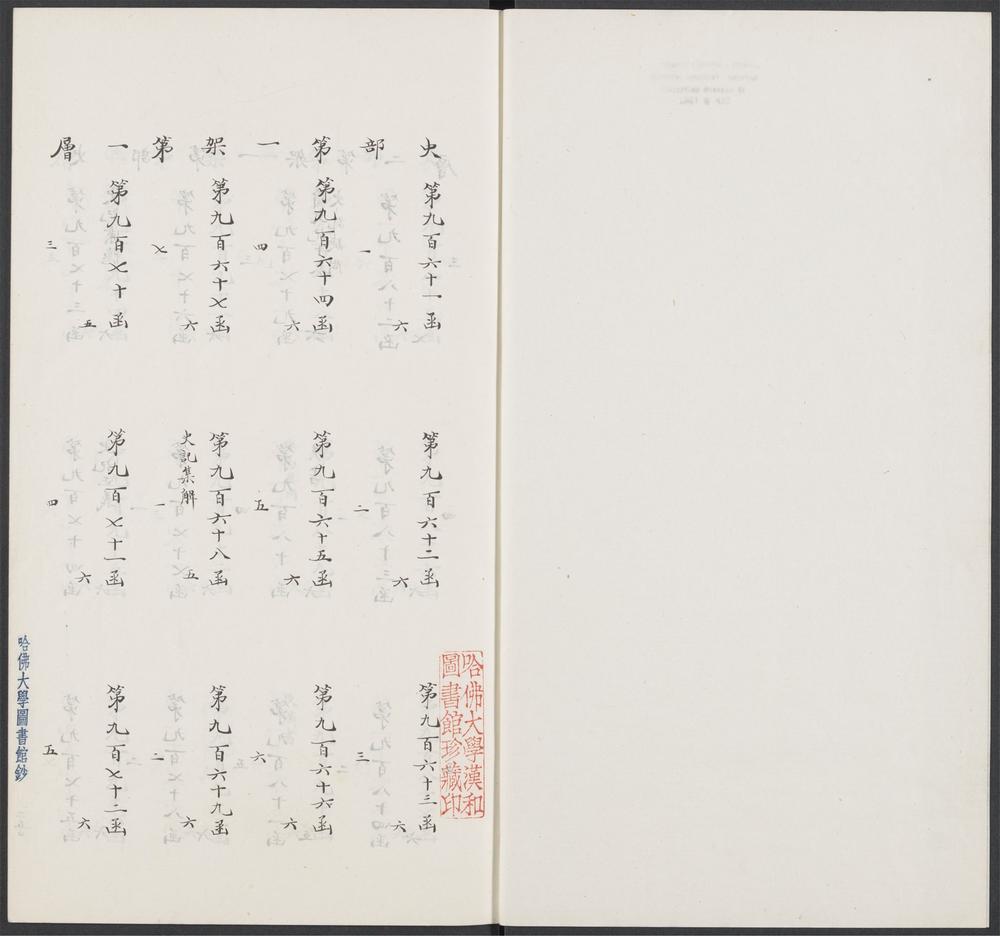 哈佛大學漢和
圖書館珍藏印
史部第一架第一層
第九百六十一函 六
一
第九百六十二函 六
二
第九百六十三函 六
三
第九百六十四函 六
四
第九百六十五函 六
五
第九百六十六函 六
六
第九百六十七函 六
七
第九百六十八函 五
史記集解 一
第九百六十九函 六
二
第九百七十函 五
三
第九百七十一函 六
四
第九百七十二函 六
五
哈佛大學圖書館鈔